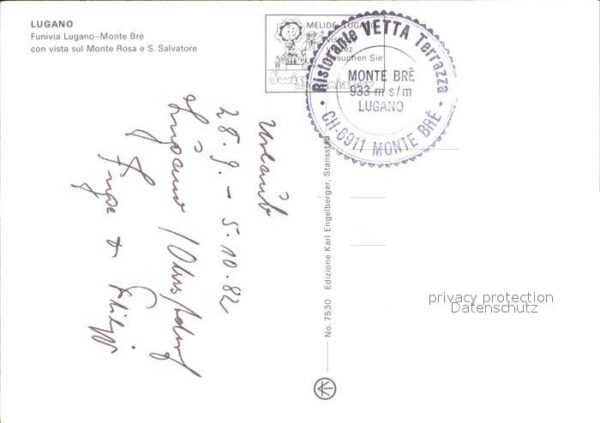 LUGANO
Funivia Lugano–Monte Brè
con vista sul Monte Rosa e S. Salvatore
MELIDE-LUGANO
suchen Sie
Ristorante VETTA Terrazza
MONTE BRÈ
933 m s/m
LUGANO
CH-6911 MONTE BRÈ
Urlaub
28.9. – 5.10.82
Lugano /
Inge + Philipp
No. 7530 Edizione Karl Engelberger, Stansstad
privacy protection
Datenschutz